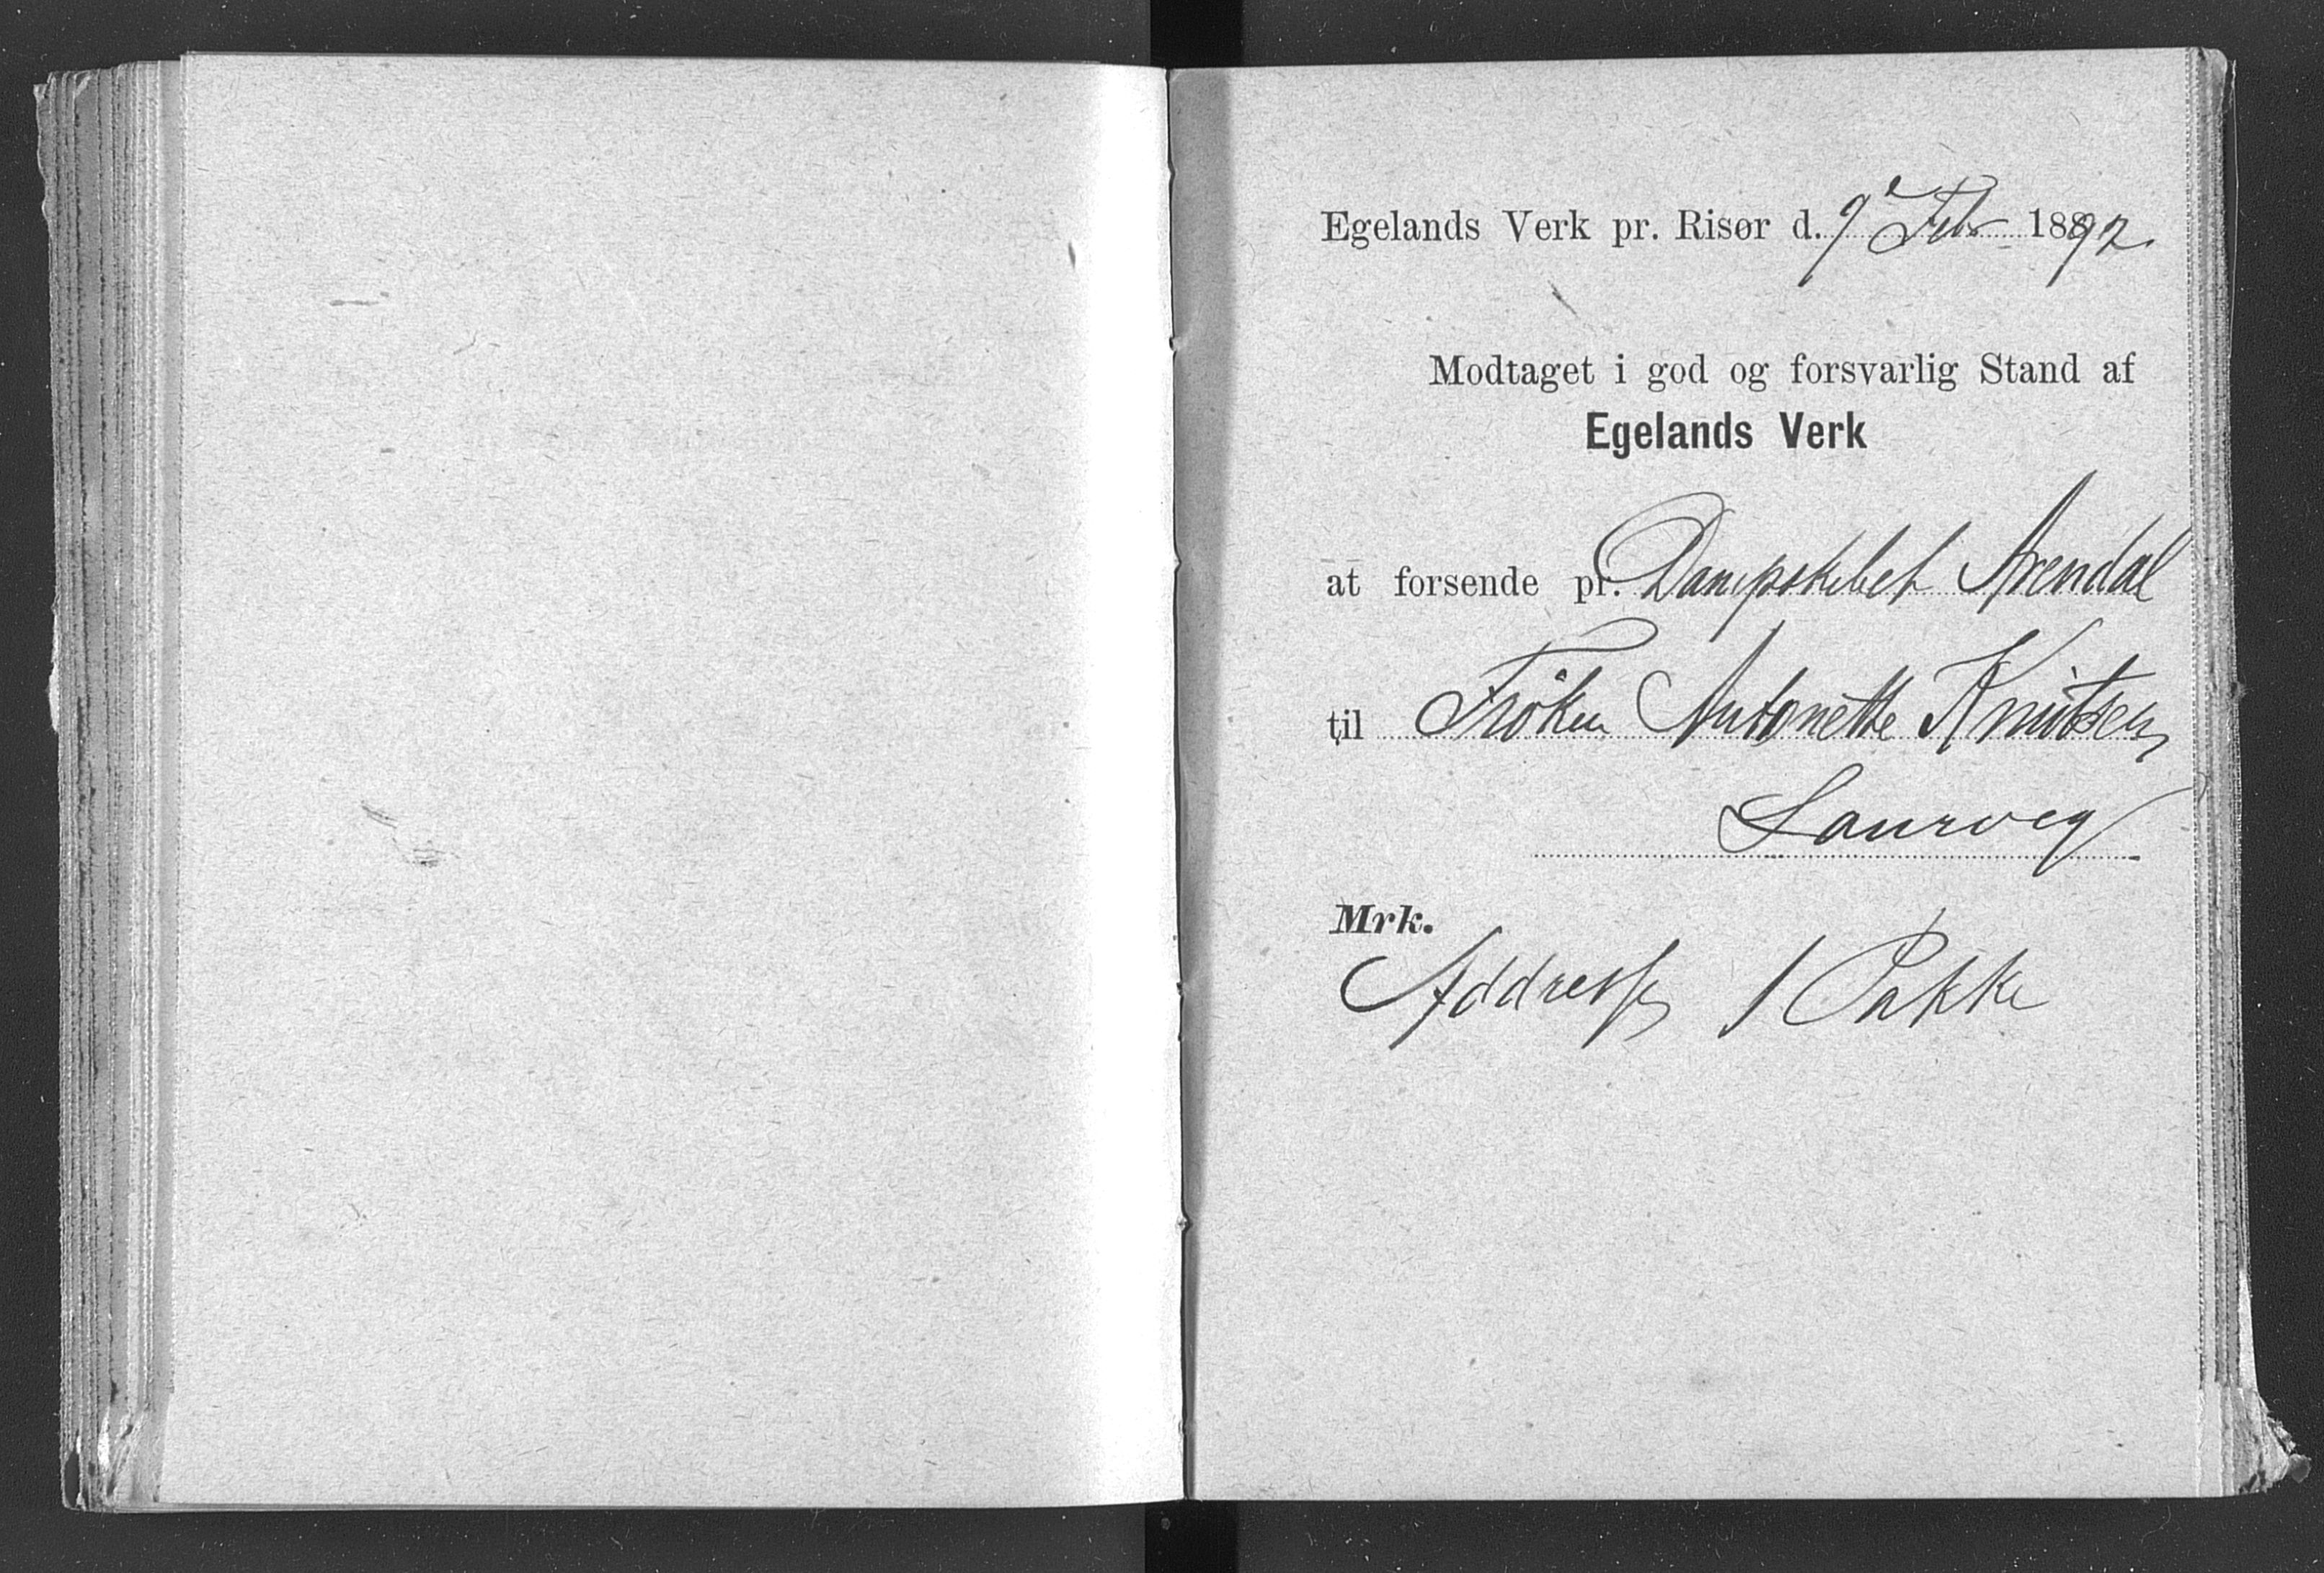 Egelands Verk pr. Risør d. 9e Febr 1892.
Modtaget i god og forsvarlig Stand af
Egelands Verk
at forsende pr. Dampskibet Arendal
til Frøken Antonette Knutsen
Laurvig
Mrk.
Addresse 1 Pakke